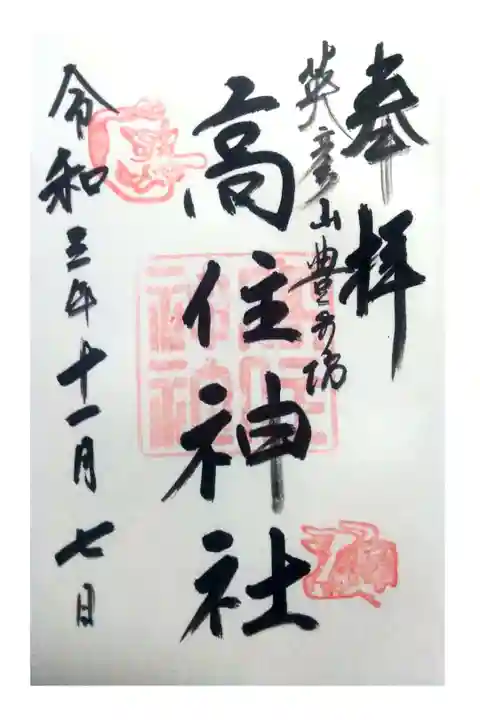 奉拝
英彦山豊前坊
高住神社
令和三年十一月七日